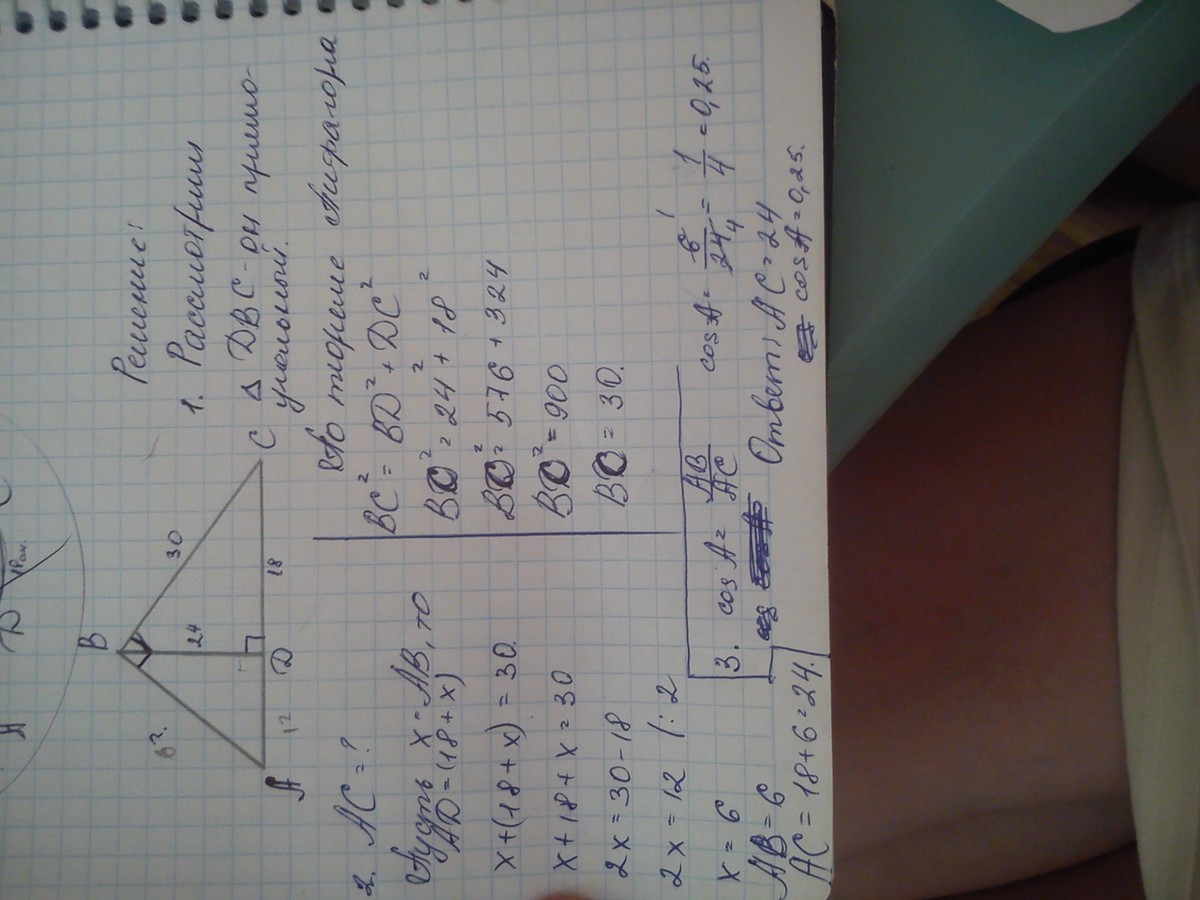 Решение:
1. Рассмотрим
Δ DBC - он прямо-
угольный.
По теореме Пифагора
BC² = BD² + DC²
BC² = 24² + 18²
BC² = 576 + 324
BC² = 900
BC = 30.
B
30
24
A
D
18
C
2. AC = ?
Пусть x = AB, то
AD = (18 + x)
x + (18 + x) = 30.
x + 18 + x = 30
2x = 30 - 18
2x = 12 /: 2
x = 6
AB = 6
AC = 18 + 6 = 24.
3. cos A = AB/AC
cos A = 6/24 = 1/4 = 0,25.
Ответ: AC = 24
cos A = 0,25.